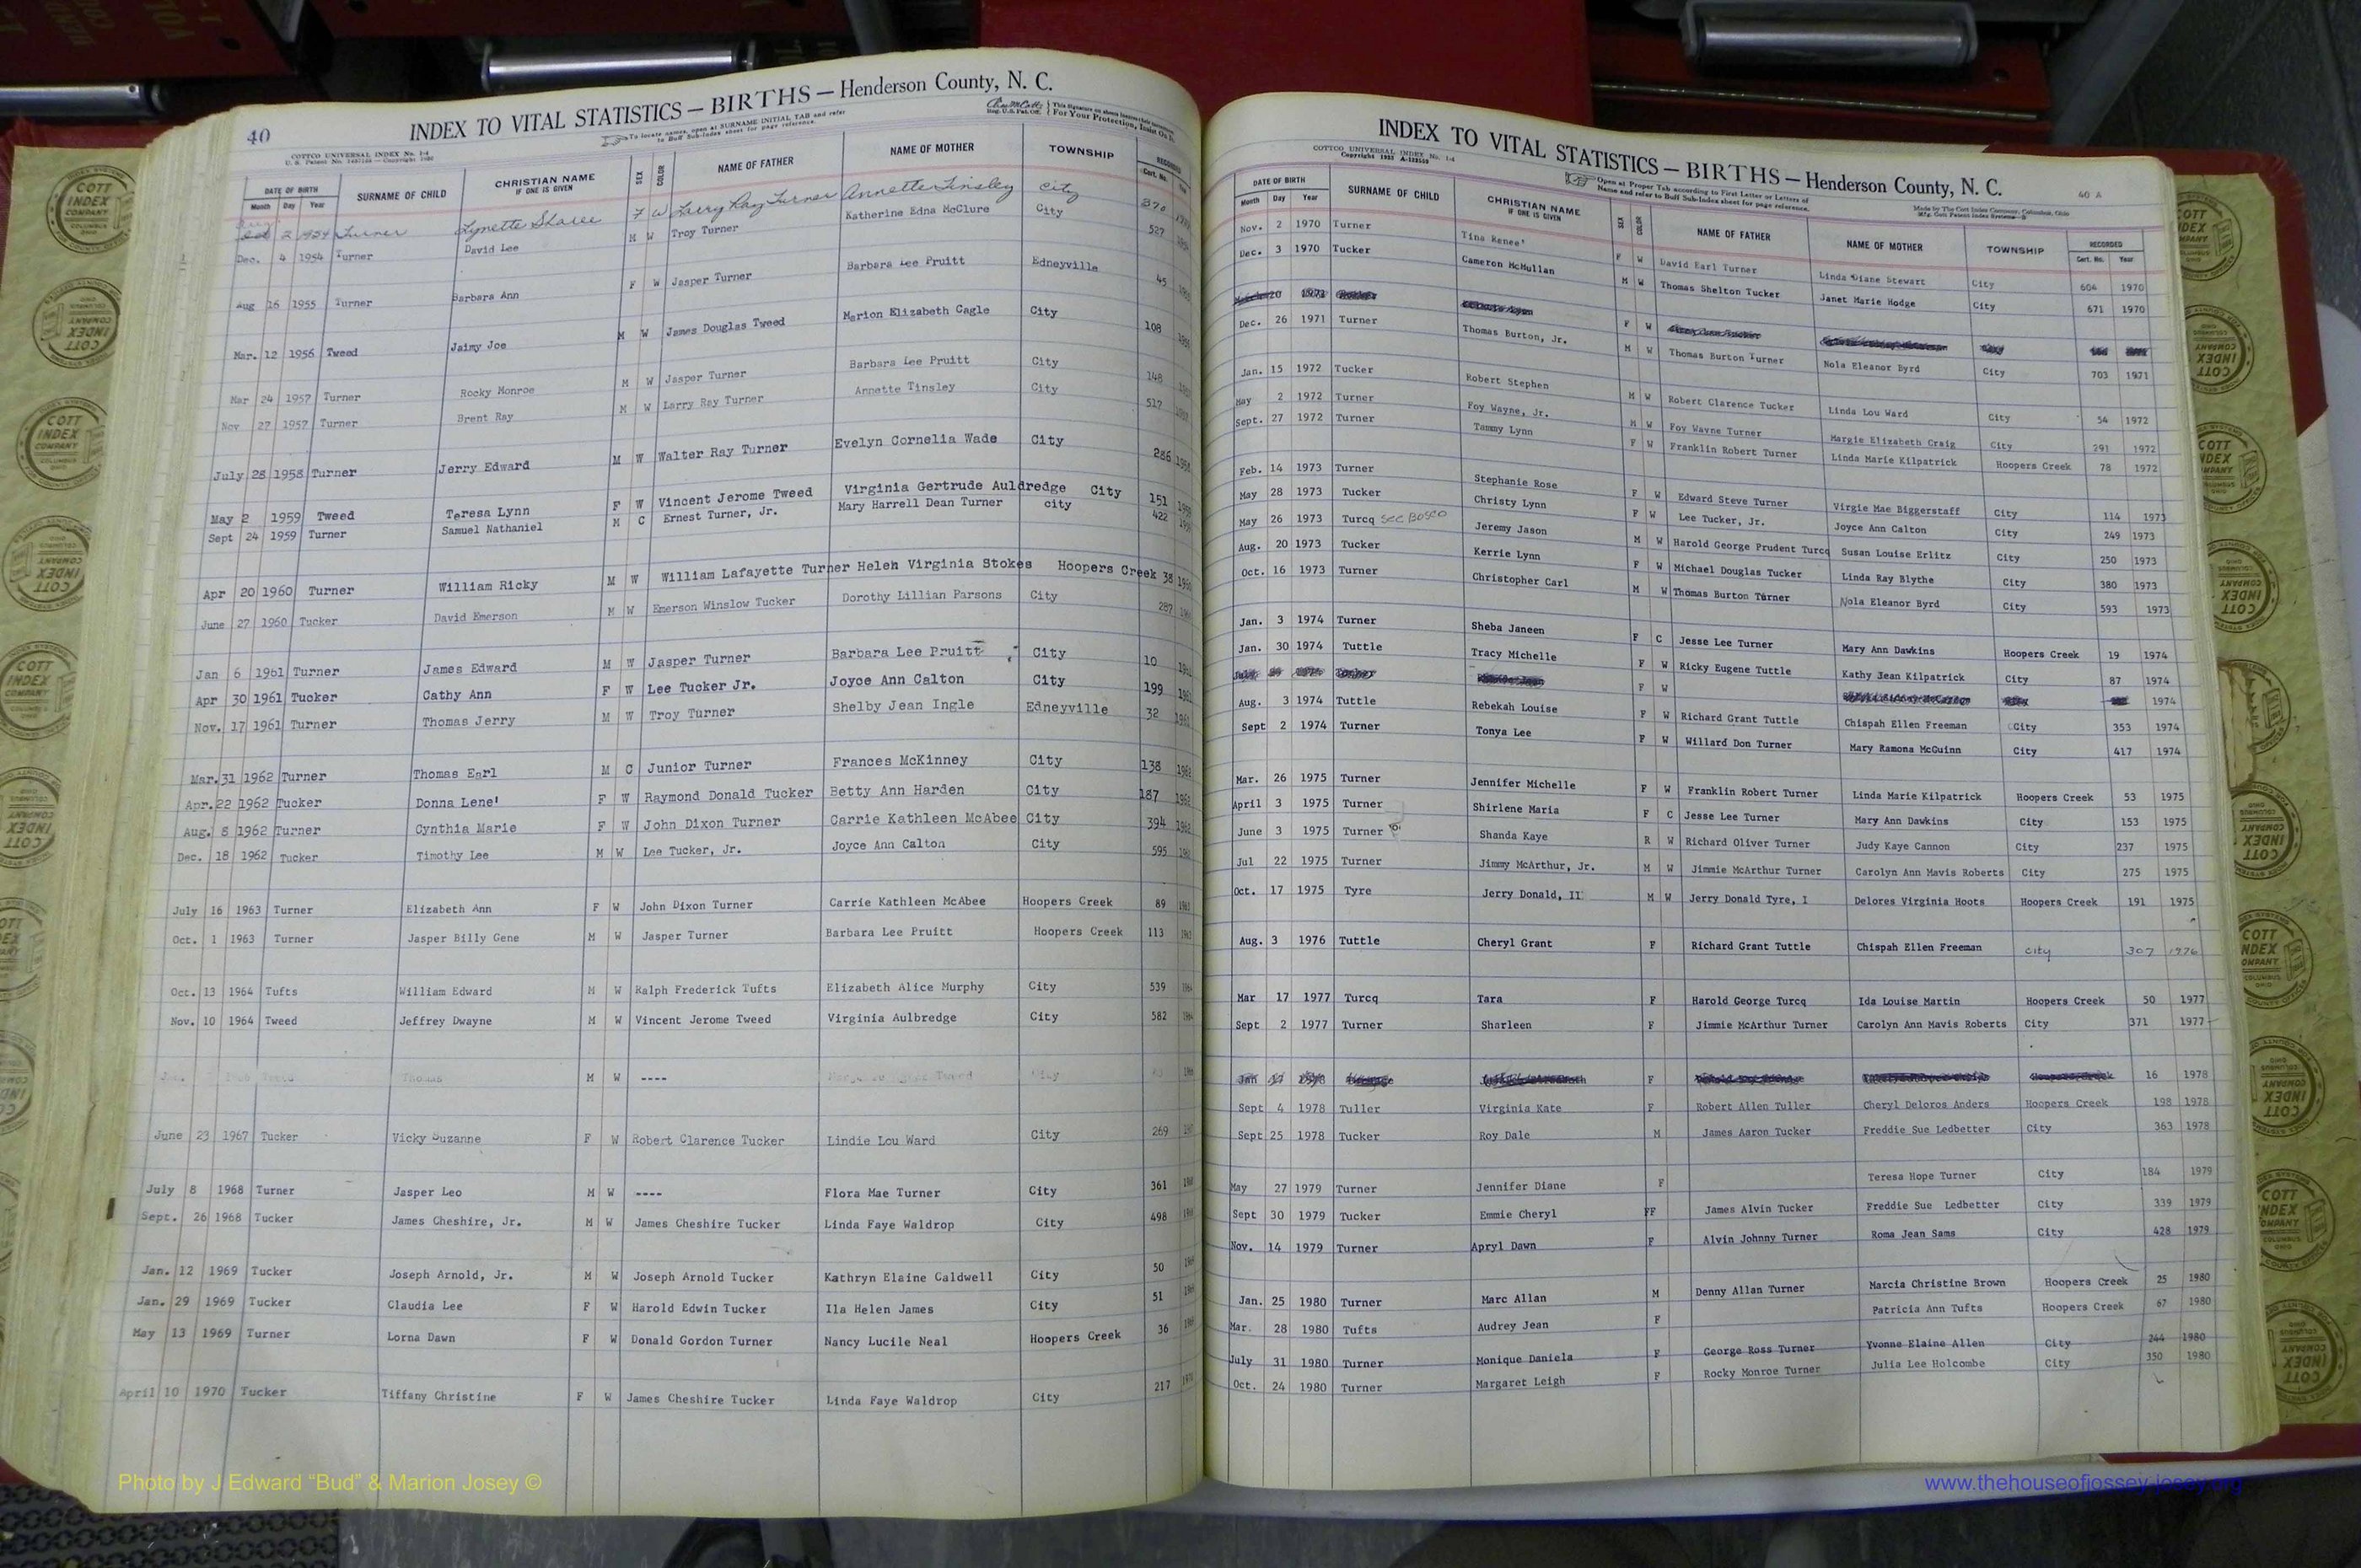 40
INDEX TO VITAL STATISTICS — BIRTHS — Henderson County, N. C.
COTTCO UNIVERSAL INDEX No. 1-4
To locate names, open at SURNAME INITIAL TAB and refer
to Buff Sub-Index sheet for page reference.
DATE OF BIRTH SURNAME OF CHILD CHRISTIAN NAME IF ONE IS GIVEN SEX COLOR NAME OF FATHER NAME OF MOTHER TOWNSHIP RECORDED
Month Day Year Cert. No.
2 1954 Turner Lynette Sharee F W Larry Ray Turner Annette Tinsley City 370
Dec. 4 1954 Turner David Lee M W Troy Turner Katherine Edna McClure City 527
Aug 16 1955 Turner Barbara Ann F W Jasper Turner Barbara Lee Pruitt Edneyville 45
Mar. 12 1956 Tweed Jaimy Joe M W James Douglas Tweed Marion Elizabeth Cagle City 108
Mar 24 1957 Turner Rocky Monroe M W Jasper Turner Barbara Lee Pruitt City 148
Nov 27 1957 Turner Brent Ray M W Larry Ray Turner Annette Tinsley City 517
July 28 1958 Turner Jerry Edward M W Walter Ray Turner Evelyn Cornelia Wade City 286 1958
May 2 1959 Tweed Teresa Lynn F W Vincent Jerome Tweed Virginia Gertrude Auldredge City 151 1959
Sept 24 1959 Turner Samuel Nathaniel M C Ernest Turner, Jr. Mary Harrell Dean Turner city 422
Apr 20 1960 Turner William Ricky M W William Lafayette Turner Helen Virginia Stokes Hoopers Creek 38 1960
June 27 1960 Tucker David Emerson M W Emerson Winslow Tucker Dorothy Lillian Parsons City 287
Jan 6 1961 Turner James Edward M W Jasper Turner Barbara Lee Pruitt City 10
Apr 30 1961 Tucker Cathy Ann F W Lee Tucker Jr. Joyce Ann Calton City 199
Nov. 17 1961 Turner Thomas Jerry M W Troy Turner Shelby Jean Ingle Edneyville 32
Mar. 31 1962 Turner Thomas Earl M C Junior Turner Frances McKinney City 138
Apr. 22 1962 Tucker Donna Lene' F W Raymond Donald Tucker Betty Ann Harden City 187
Aug. 8 1962 Turner Cynthia Marie F W John Dixon Turner Carrie Kathleen McAbee City 394
Dec. 18 1962 Tucker Timothy Lee M W Lee Tucker, Jr. Joyce Ann Calton City 595
July 16 1963 Turner Elizabeth Ann F W John Dixon Turner Carrie Kathleen McAbee Hoopers Creek 89
Oct. 1 1963 Turner Jasper Billy Gene M W Jasper Turner Barbara Lee Pruitt Hoopers Creek 113
Oct. 13 1964 Tufts William Edward M W Ralph Frederick Tufts Elizabeth Alice Murphy City 539
Nov. 10 1964 Tweed Jeffrey Dwayne M W Vincent Jerome Tweed Virginia Aulbredge City 582
Jan. Tweed Thomas M W ---- Tweed City
June 23 1967 Tucker Vicky Suzanne F W Robert Clarence Tucker Lindie Lou Ward City 269
July 8 1968 Turner Jasper Leo M W ---- Flora Mae Turner City 361
Sept. 26 1968 Tucker James Cheshire, Jr. M W James Cheshire Tucker Linda Faye Waldrop City 498
Jan. 12 1969 Tucker Joseph Arnold, Jr. M W Joseph Arnold Tucker Kathryn Elaine Caldwell City 50
Jan. 29 1969 Tucker Claudia Lee F W Harold Edwin Tucker Ila Helen James City 51
May 13 1969 Turner Lorna Dawn F W Donald Gordon Turner Nancy Lucile Neal Hoopers Creek 36
April 10 1970 Tucker Tiffany Christine F W James Cheshire Tucker Linda Faye Waldrop City 217
INDEX TO VITAL STATISTICS — BIRTHS — Henderson County, N. C.
40 A
COTTCO UNIVERSAL INDEX No. 1-4
Open at Proper Tab according to First Letter or Letters of
Name and refer to Buff Sub-Index sheet for page reference.
DATE OF BIRTH SURNAME OF CHILD CHRISTIAN NAME IF ONE IS GIVEN SEX COLOR NAME OF FATHER NAME OF MOTHER TOWNSHIP RECORDED
Month Day Year Cert. No. Year
Nov. 2 1970 Turner Tina Renee' F W David Earl Turner Linda Diane Stewart City 604 1970
Dec. 3 1970 Tucker Cameron McMullan M W Thomas Shelton Tucker Janet Marie Hodge City 671 1970
F W
Dec. 26 1971 Turner Thomas Burton, Jr. M W Thomas Burton Turner Nola Eleanor Byrd City 703 1971
Jan. 15 1972 Tucker Robert Stephen M W Robert Clarence Tucker Linda Lou Ward City 54 1972
May 2 1972 Turner Foy Wayne, Jr. M W Foy Wayne Turner Margie Elizabeth Craig City 291 1972
Sept. 27 1972 Turner Tammy Lynn F W Franklin Robert Turner Linda Marie Kilpatrick Hoopers Creek 78 1972
Feb. 14 1973 Turner Stephanie Rose F W Edward Steve Turner Virgie Mae Biggerstaff City 114 1973
May 28 1973 Tucker Christy Lynn F W Lee Tucker, Jr. Joyce Ann Calton City 249 1973
May 26 1973 Turcq see Bosco Jeremy Jason M W Harold George Prudent Turcq Susan Louise Erlitz City 250 1973
Aug. 20 1973 Tucker Kerrie Lynn F W Michael Douglas Tucker Linda Ray Blythe City 380 1973
Oct. 16 1973 Turner Christopher Carl M W Thomas Burton Turner Nola Eleanor Byrd City 593 1973
Jan. 3 1974 Turner Sheba Janeen F C Jesse Lee Turner Mary Ann Dawkins Hoopers Creek 19 1974
Jan. 30 1974 Tuttle Tracy Michelle F W Ricky Eugene Tuttle Kathy Jean Kilpatrick City 87 1974
F W 1974
Aug. 3 1974 Tuttle Rebekah Louise F W Richard Grant Tuttle Chispah Ellen Freeman City 353 1974
Sept 2 1974 Turner Tonya Lee F W Willard Don Turner Mary Ramona McGuinn City 417 1974
Mar. 26 1975 Turner Jennifer Michelle F W Franklin Robert Turner Linda Marie Kilpatrick Hoopers Creek 53 1975
April 3 1975 Turner Shirlene Maria F C Jesse Lee Turner Mary Ann Dawkins City 153 1975
June 3 1975 Turner Shanda Kaye R W Richard Oliver Turner Judy Kaye Cannon City 237 1975
Jul 22 1975 Turner Jimmy McArthur, Jr. M W Jimmie McArthur Turner Carolyn Ann Mavis Roberts City 275 1975
Oct. 17 1975 Tyre Jerry Donald, II M W Jerry Donald Tyre, I Delores Virginia Hoots Hoopers Creek 191 1975
Aug. 3 1976 Tuttle Cheryl Grant F Richard Grant Tuttle Chispah Ellen Freeman city 307 1976
Mar 17 1977 Turcq Tara F Harold George Turcq Ida Louise Martin Hoopers Creek 50 1977
Sept 2 1977 Turner Sharleen F Jimmie McArthur Turner Carolyn Ann Mavis Roberts City 371 1977
Jan 1978 F Hoopers Creek 16 1978
Sept 4 1978 Tuller Virginia Kate F Robert Allen Tuller Cheryl Deloros Anders Hoopers Creek 198 1978
Sept 25 1978 Tucker Roy Dale M James Aaron Tucker Freddie Sue Ledbetter City 363 1978
May 27 1979 Turner Jennifer Diane F Teresa Hope Turner City 184 1979
Sept 30 1979 Tucker Emmie Cheryl FF James Alvin Tucker Freddie Sue Ledbetter City 339 1979
Nov. 14 1979 Turner Apryl Dawn F Alvin Johnny Turner Roma Jean Sams City 428 1979
Jan. 25 1980 Turner Marc Allan M Denny Allan Turner Marcia Christine Brown Hoopers Creek 25 1980
Mar. 28 1980 Tufts Audrey Jean F Patricia Ann Tufts Hoopers Creek 67 1980
July 31 1980 Turner Monique Daniela F George Ross Turner Yvonne Elaine Allen City 244 1980
Oct. 24 1980 Turner Margaret Leigh F Rocky Monroe Turner Julia Lee Holcombe City 350 1980
Photo by J Edward “Bud” & Marion Josey ©
www.thehouseofjossey-josey.org